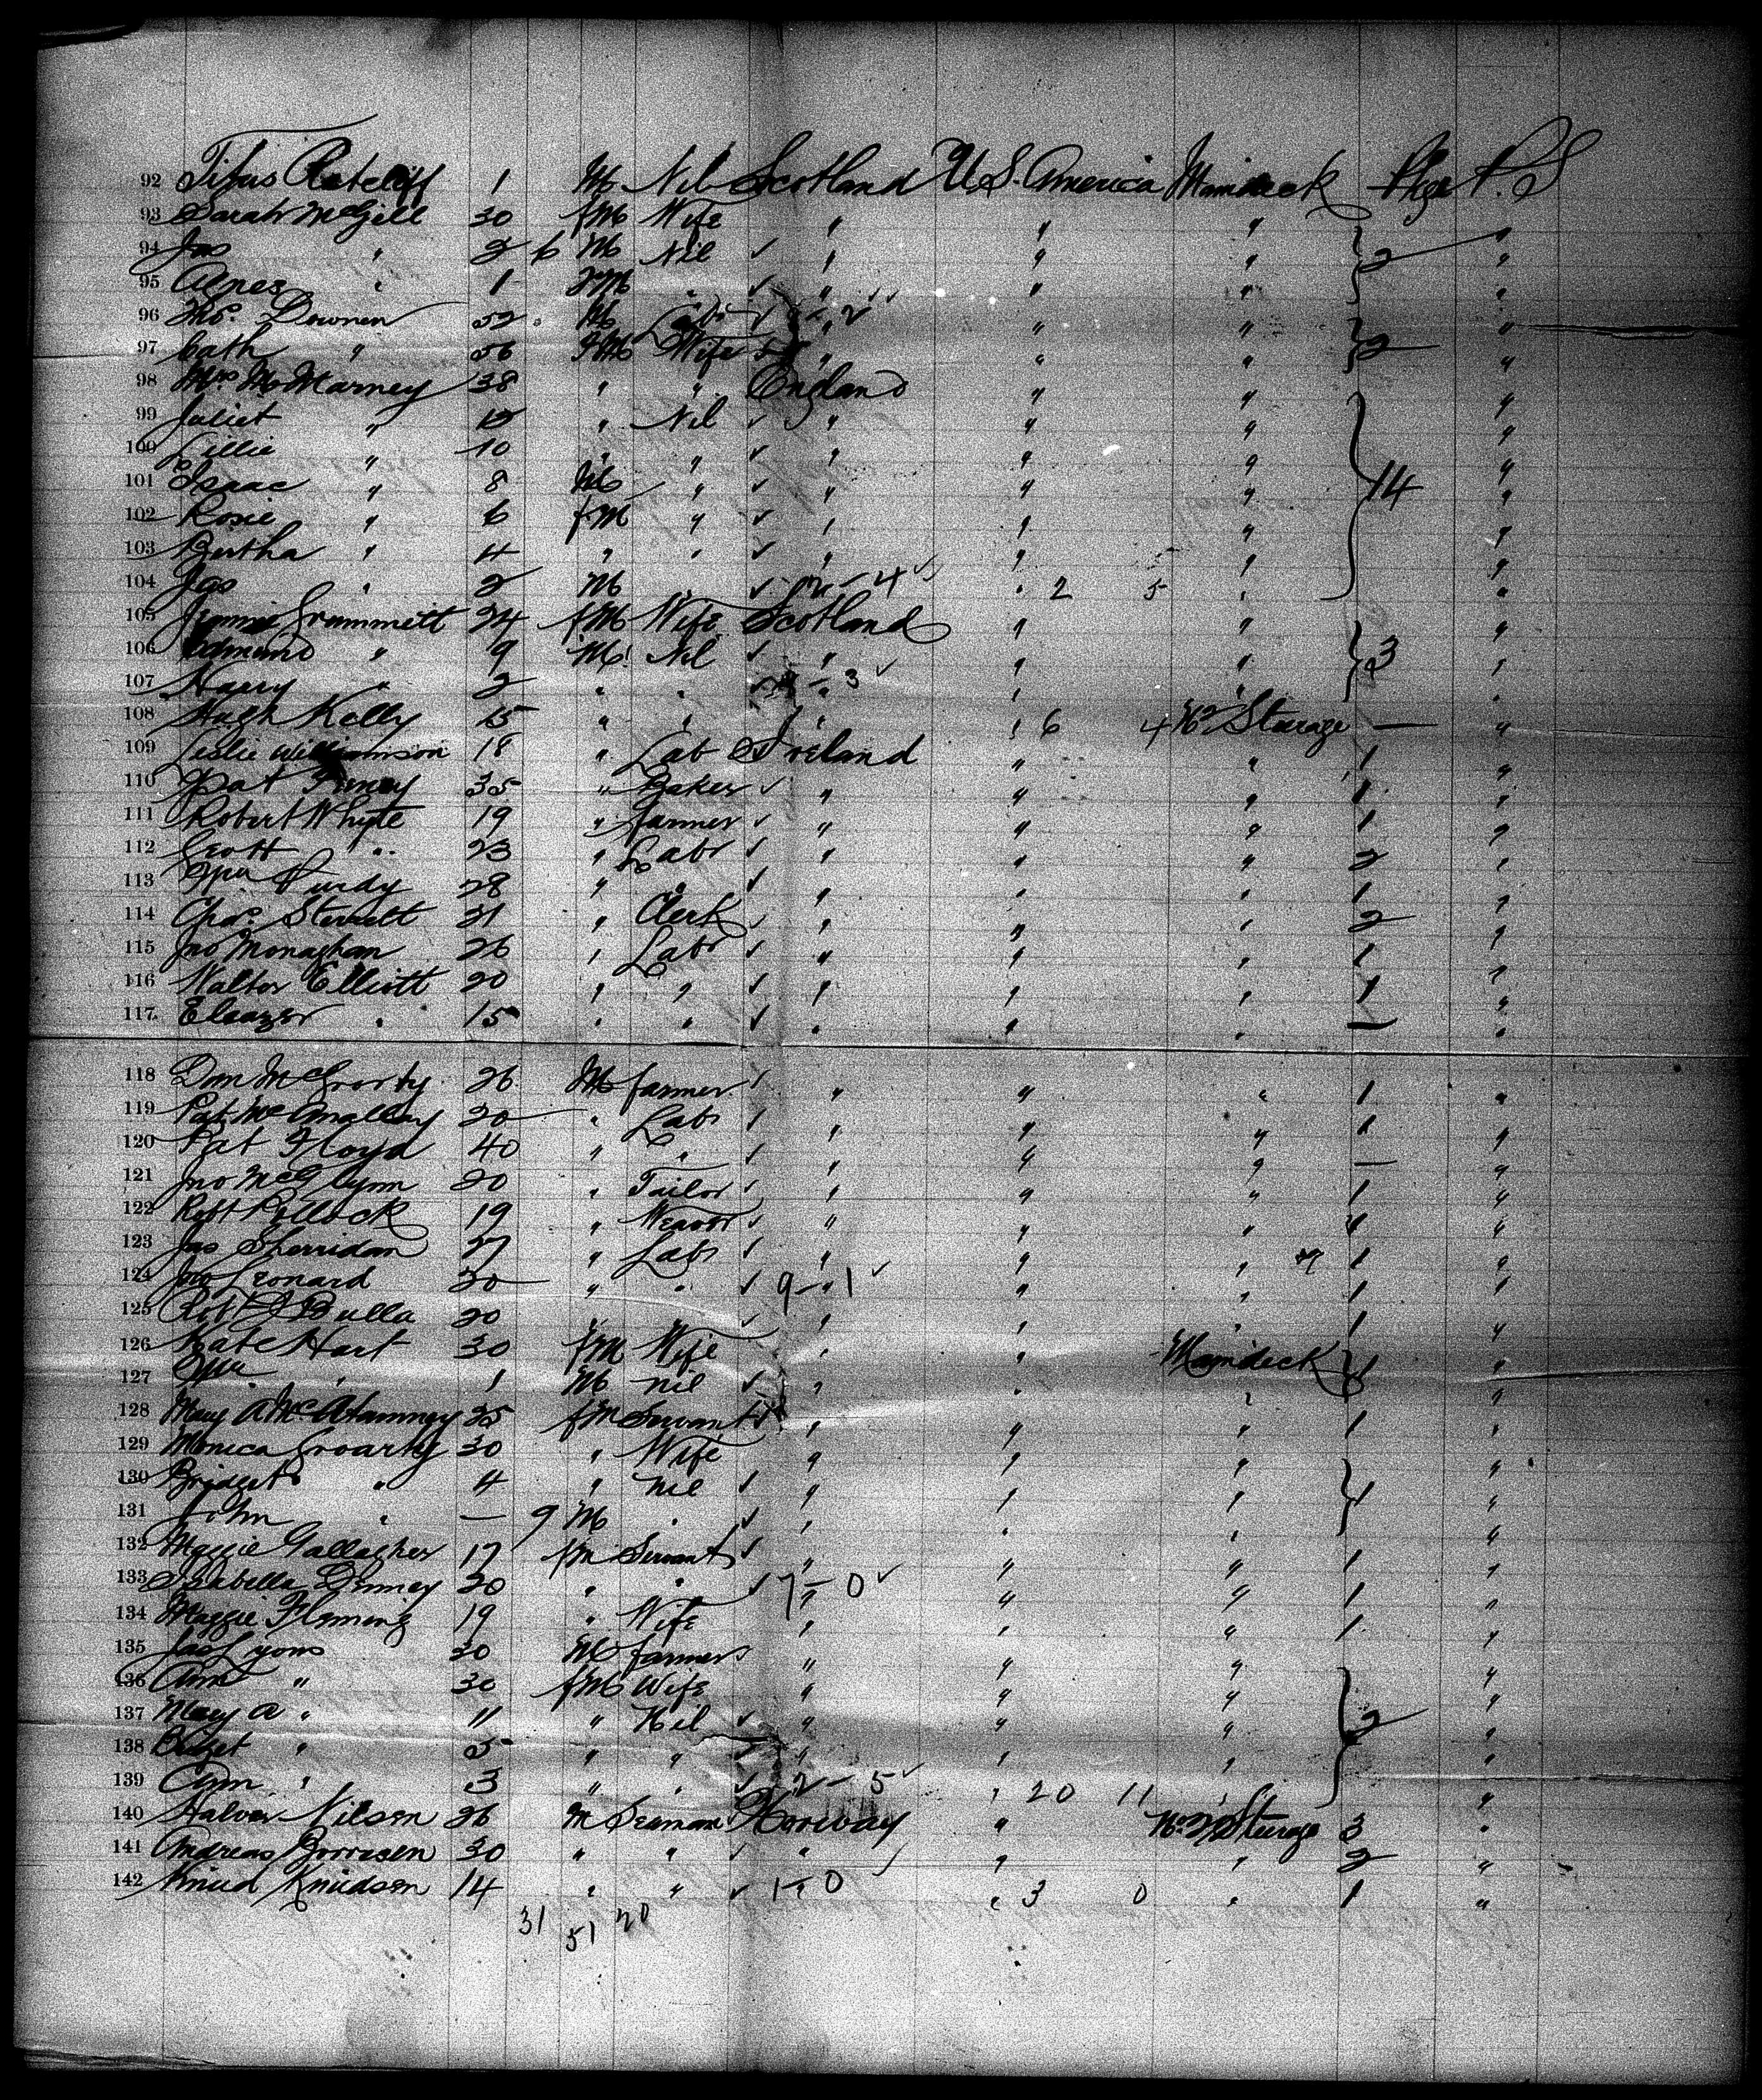 92 Titus Ratcliff 1 M Nil Scotland U.S. America Maindeck P.S
93 Sarah McGill 30 fM Wife " " " "
94 Jas " 2 6 M Nil ✓ " " " 2 "
95 Agnes " 1 fM " ✓ " " " "
96 Tho. Downen 52 M ✓ " " " "
97 Cath " 56 fM Wife " " " 2 "
98 Mrs M Marney 38 " " England " " "
99 Juliet " " Nil ✓ " " " "
100 Lillie " 10 " " ✓ " " " "
101 Isaac " 8 M " ✓ " " " 14 "
102 Rosie " 6 fM " ✓ " " " "
103 Bertha " 4 " " ✓ " " " "
104 Jas " 2 M " ✓ 2 - 4 ✓ " 2 5 " "
105 Jennie Grummett 24 fM Wife Scotland " " "
106 Edmund " 9 M Nil ✓ " " " 3 "
107 Harry " 2 " " ✓ - 3 ✓ " " "
108 Hugh Kelly 15 " " " " 6 4 No 2 Sturage — "
109 Leslie Williamson 18 " Lab Ireland " " 1 "
110 Pat 35 " Baker ✓ " " " 1 "
111 Robert Whyte 19 " farmer ✓ " " " 1 "
112 Scott " 23 " Labr ✓ " " " 2 "
113 Wm Purdy 28 " " ✓ " " " 1 "
114 Chas. Sterrett 31 " Clerk ✓ " " " 2 "
115 Jno Monaghan 26 " Labr ✓ " " " 1 "
116 Walter Elliott 20 " " ✓ " " " 1 "
117 Eleazer " 15 " " ✓ " " " — "
118 Dan McGrorty 26 M farmer ✓ " " " 1 "
119 Pat 20 " Labr ✓ " " " 1 "
120 Pat Floyd 40 " " ✓ " " " — "
121 Jno McGlynn 20 " Tailor ✓ " " " 1 "
122 Robt Pollock 19 " Weavor ✓ " " " 1 "
123 Jas Sherridan 27 " Labr ✓ " " " 1 "
124 Jno Leonard 30 " " ✓ 9 - 1 ✓ " " 1 "
125 Robt J Bulla 20 " " ✓ " " " 1 "
126 Kate Hart 30 fM Wife " " Maindeck 1 "
127 Wm " 1 M nil ✓ " " " "
128 Mary A McAtamney 35 fM Servant ✓ " " " 1 "
129 Monica Groarky 30 " Wife " " " "
130 Bridget " 4 " nil ✓ " " " 1 "
131 John " — 9 M " ✓ " " " "
132 Maggie Gallagher 17 fM Servant ✓ " " " 1 "
133 Isabella Denney 20 " " ✓ 7 - 0 ✓ " " 1 "
134 Maggie Fleming 19 " Wife " " " 1 "
135 Jas Lyons 30 M farmer " " " "
136 Ann " 30 fM Wife " " " "
137 Mary A " 11 " Nil ✓ " " " 2 "
138 Bidget " 5 " " ✓ " " " "
139 Ann " 3 " " ✓ 2 - 5 ✓ " 20 11 " "
140 Halvor Nilsen 26 M Seaman Norway " No 2 Sturage 3 "
141 Andreas Borresen 30 " " ✓ " " " 2 "
142 Knud Knudsen 14 " " ✓ 1 - 0 ✓ " 3 0 " 1 "
31 51 20